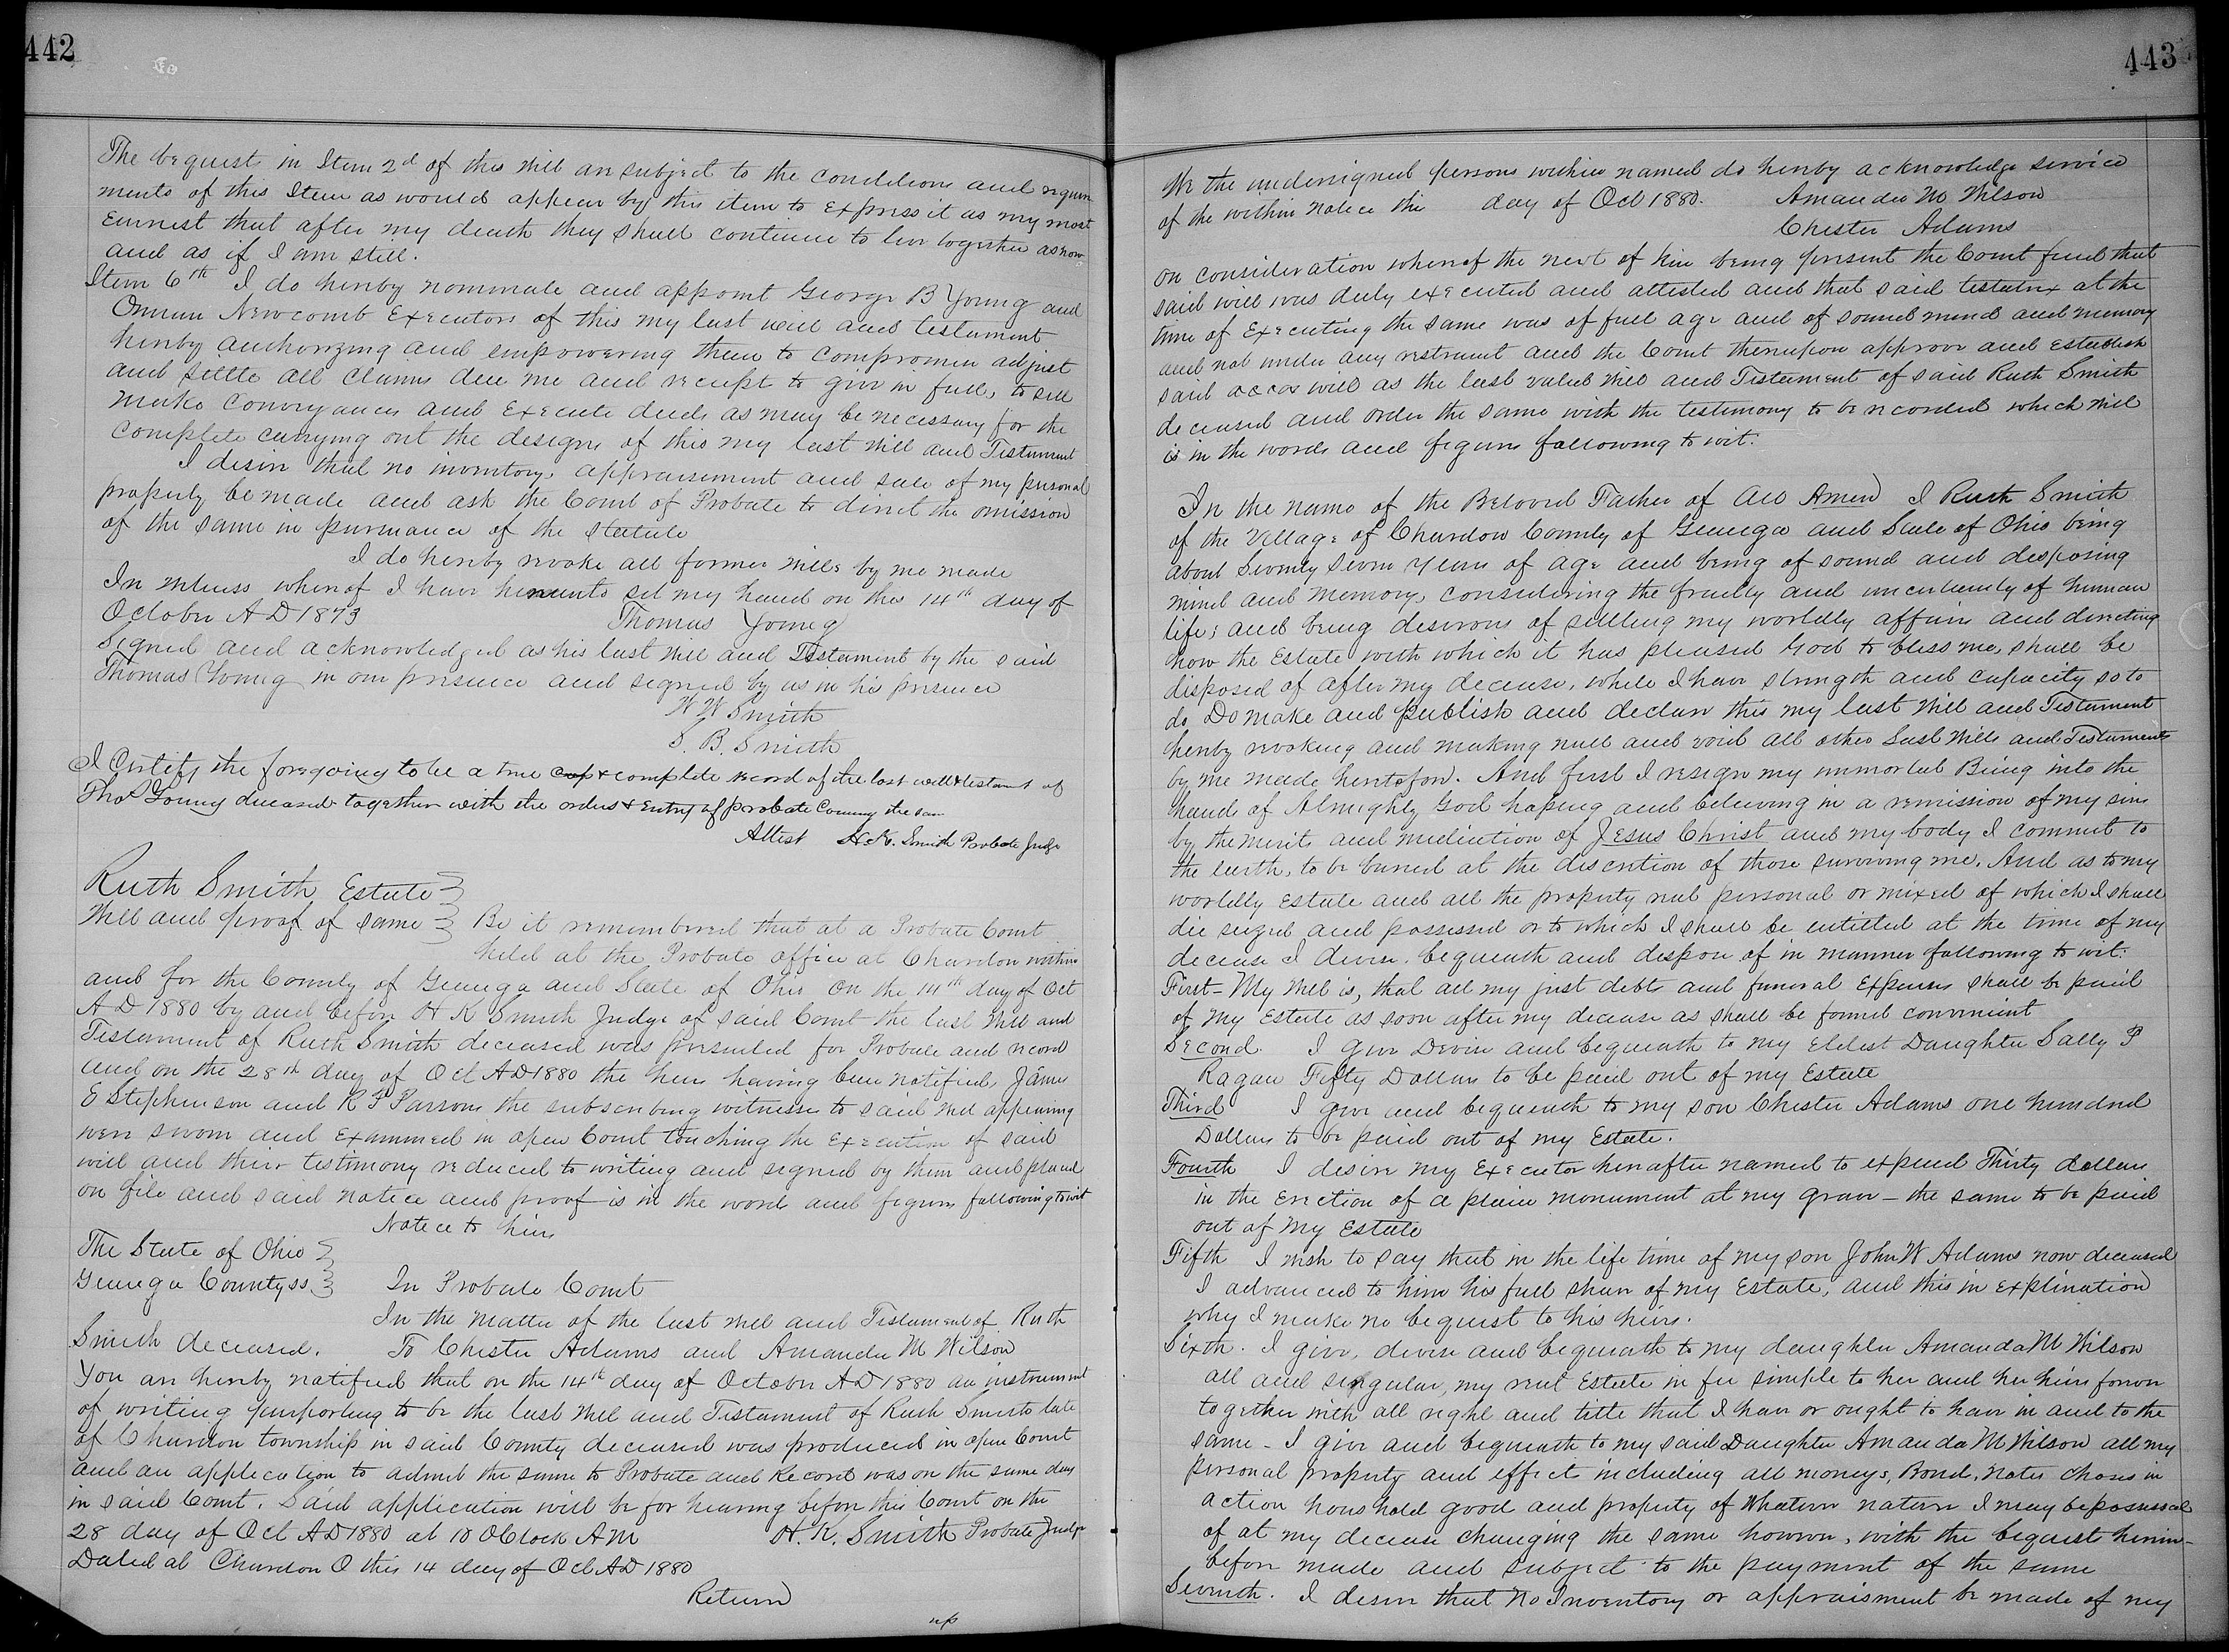 442
The bequests in Item 2d of this Will are subject to the conditions and require
ments of this Item as would appear by this item to express it as my most
earnest that after my death they shall continue to live together as now
and as if I am still.
Item 6th I do hereby nominate and appoint George B Young and
Newcomb Executors of this my last will and testament
hereby authorizing and empowering them to compromise adjust
and settle all claims due me and receipt to give in full, to sell
make conveyances and Execute deeds as may be necessary for the
complete carrying out the designs of this my last Will and Testament
I desire that no inventory, appraisement and sale of my personal
property be made and ask the Court of Probate to direct the omission
of the same in pursuance of the Statute
I do hereby revoke all former Wills by me made
In witness whereof I have hereunto set my hand on this 14th day of
October AD 1873 Thomas Young
Signed and acknowledged as his last Will and Testament by the said
Thomas Young in our presence and signed by us in his presence
W W Smith
S. B. Smith
I Certify the foregoing to be a true copy & complete record of the last will & testamt of
Thos Young deceased together with the orders & Entry of probate Concerng the same
Attest H. K. Smith Probate Judge
Ruth Smith Estate
Will and proof of same Be it remembered that at a Probate Court
held at the Probate office at Chardon within
and for the County of Geauga and State of Ohio on the 14th day of Oct
AD 1880 by and before H K Smith Judge of said Court the last Will and
Testament of Ruth Smith deceased was presented for Probate and record
and on the 28th day of Oct AD 1880 the heirs having been notified, James
E Stephenson and R F Parsons the subscribing witnesses to said Will appearing
were sworn and examined in open Court touching the execution of said
will and their testimony reduced to writing and signed by them and placed
on file and said notice and proof is in the words and figures following to wit
Notice to heirs
The State of Ohio
Geauga County ss. In Probate Court
In the matter of the last Will and Testament of Ruth
Smith deceased. To Chester Adams and Amanda M Wilson
You are hereby notified that on the 14th day of October AD 1880 an instrument
of writing purporting to be the last Will and Testament of Ruth Smith late
of Chardon township in said County deceased was produced in open Court
and an application to admit the same to Probate and Record was on the same day
in said Court. Said application will be for hearing before this Court on the
28 day of Oct AD 1880 at 10 OClock AM H. K. Smith Probate Judge
Dated at Chardon O this 14 day of Oct AD 1880
Return
443
We the undersigned persons within named do hereby acknowledge service
of the within notice this day of Oct 1880. Amanda M Wilson
Chester Adams
on consideration whereof the next of kin being present the Court find that
said will was duly executed and attested and that said testatrix at the
time of Executing the same was of full age and of sound mind and memory
and not under any restraint and the Court thereupon approve and Establish
said will as the last valid Will and Testament of said Ruth Smith
deceased and order the same with the testimony to be recorded which Will
is in the words and figures following to wit:
In the name of the Beloved Father of All Amen I Ruth Smith
of the Village of Chardon County of Geauga and State of Ohio being
about Seventy Seven Years of age and being of sound and disposing
mind and memory, considering the frailty and uncertainty of human
life; and being desirous of settling my worldly affairs and directing
how the Estate with which it has pleased God to bless me, shall be
disposed of after my decease, while I have strength and capacity so to
do, Do make and publish and declare this my last Will and Testament
hereby revoking and making null and void all other Last Wills and Testaments
by me made heretofore. And first I resign my immortal Being into the
hands of Almighty God hoping and believing in a remission of my sins
by the merits and mediation of Jesus Christ and my body I commit to
the earth, to be buried at the discretion of those surviving me. And as to my
worldly Estate and all the property real personal or mixed of which I shall
die seized and possessed or to which I shall be entitled at the time of my
decease I devise, bequeath and dispose of in manner following to wit:
First - My Will is, that all my just debts and funeral Expenses shall be paid
of my Estate as soon after my decease as shall be found convenient
Second. I give Devise and bequeath to my Eldest Daughter Sally P
Ragan Fifty Dollars to be paid out of my Estate
Third I give and bequeath to my son Chester Adams one hundred
Dollars to be paid out of my Estate.
Fourth I desire my Executor hereafter named to expend Thirty dollars
in the Erection of a plain monument at my grave - the same to be paid
out of my Estate
Fifth I wish to say that in the life time of my son John W Adams now deceased
I advanced to him his full share of my Estate, and this in explination
why I make no bequest to his heirs.
Sixth. I give, devise and bequeath to my daughter Amanda M Wilson
all and singular, my real Estate in fee simple to her and her heirs forever
together with all right and title that I have or ought to have in and to the
same - I give and bequeath to my said Daughter Amanda M Wilson all my
personal property and effects including all moneys, Bonds, notes choses in
action household goods and property of Whatever nature I may be possessed
of at my decease charging the same however, with the bequests herein-
before made and subject to the payment of the same
Seventh. I desire that no Inventory or appraisment be made of my